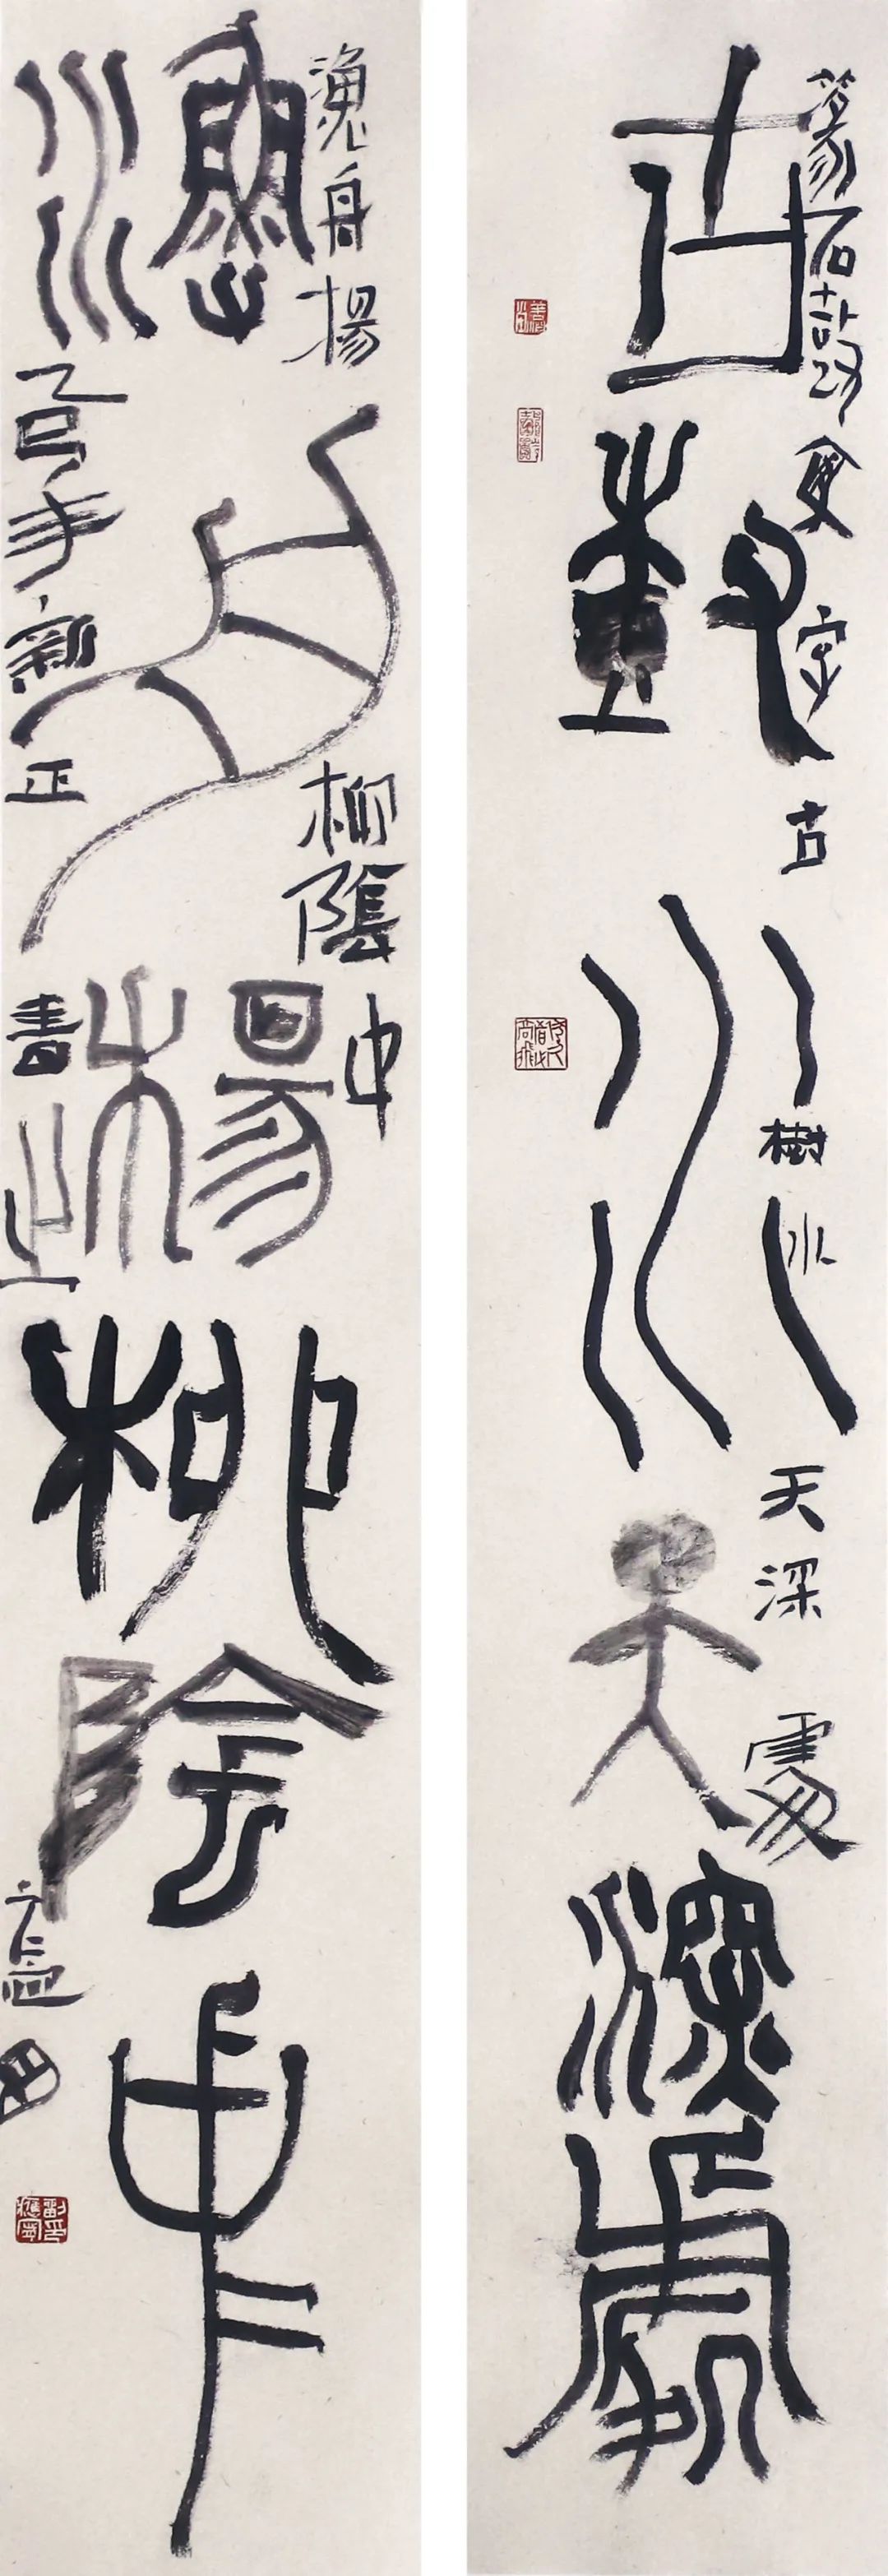 古樹水天深處
篆石鼓文字
古樹水天深處
漁舟楊柳陰中
漁舟楊柳陰中
手新正書之